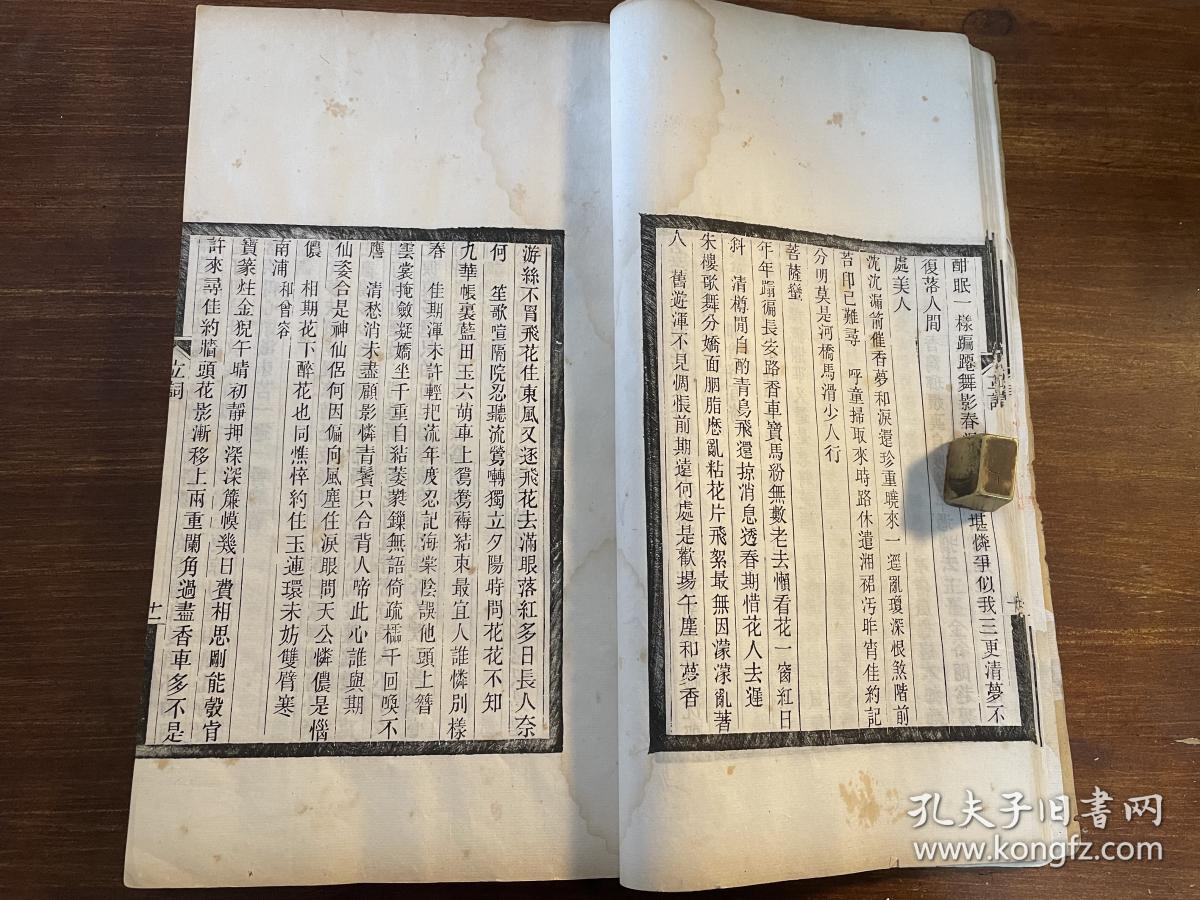 酣眠一樣蹁躚舞影春
堪憐爭似我三更清夢不
復落人間
虞美人
沈沈漏箭催香夢和淚還珍重曉來一逕亂瓊深恨煞階前
苔印已難尋　呼童掃取來時路休遣湘裙汚昨宵佳約記
分明莫是河橋馬滑少人行
菩薩蠻
年年蹋徧長安路香車寶馬粉無數老去懶看花一窗紅日
斜　清樽閒自酌青鳥飛還掠消息透春期惜花人去遲
朱樓歌舞分嬌面胭脂麽亂粘花片飛絮最無因濛濛亂著
人　舊遊渾不見惆悵前期遠何處是歡場午塵和夢香
游絲不罥飛花住東風又逐飛花去滿眼落紅多日長人奈
何　笙歌喧隔院忍聽流鶯囀獨立夕陽時問花花不知
九華帳裏藍田玉六萌車上鴛鴦褥結束最宜人誰憐別樣
春　佳期渾未許輕把流年度忍記海棠陰誤他頭上簪
雲裳掩斂凝嬌坐千重自結菱鏁無語倚疏櫺千回喚不
譍　清愁消未盡顧影憐青鬢只合背人啼此心誰與期
仙姿合是神仙侶何因偏向風塵住淚眼問天公憐儂是惱
儂　相期花下醉花也同憔悴約住玉蓮環未妨雙臂寒
南浦和曾容
寶篆炷金猊午晴初靜押深深簾幙幾日費相思剛能彀肯
許來尋佳約牆頭花影漸移上兩重闌角過盡香車多不是
立詞
十一
孔夫子旧书网
www.kongfz.com